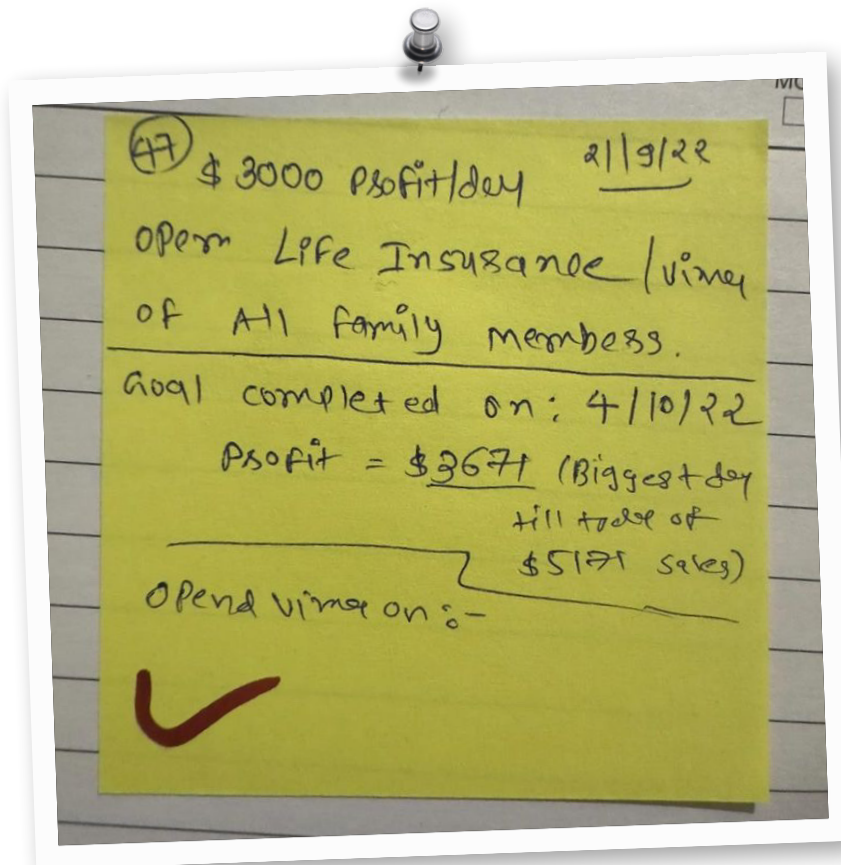 47
$ 3000 Profit/day 21/9/22
open Life Insurance / vima
of All family members.
Goal completed on: 4/10/22
Profit = $3671 (Biggest day
till today of
$5171 sales)
Opend vima on :-